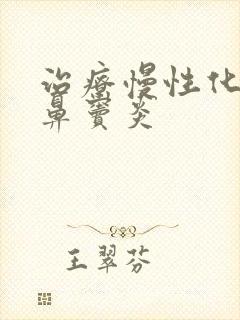 治疗慢性化
鼻窦炎
王翠芬